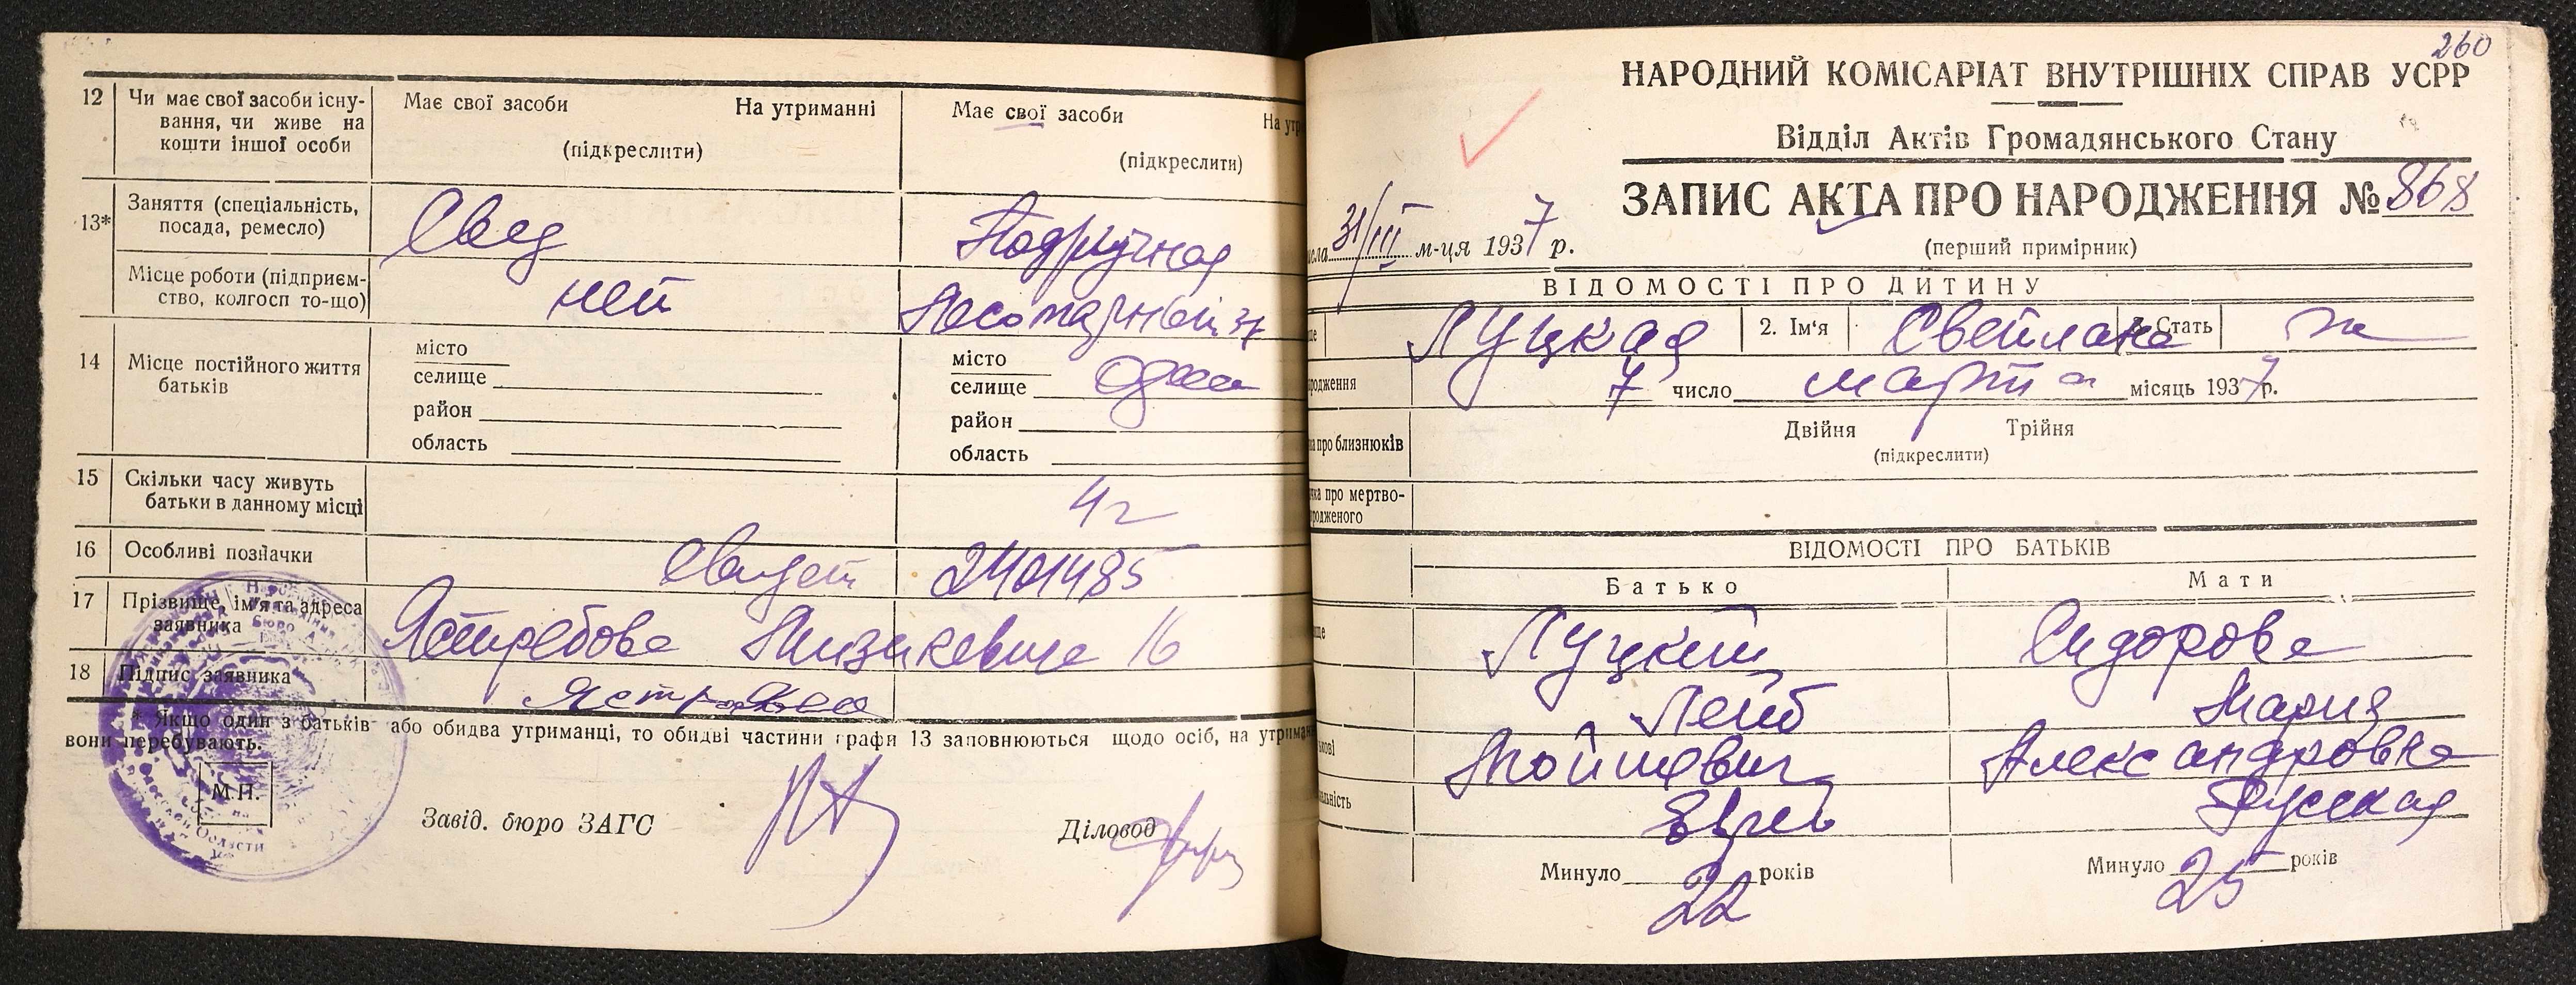 12 Чи має свої засоби існу-
вання, чи живе на
кошти іншої особи
Має свої засоби На утриманні
(підкреслити)
Має свої засоби На утри
(підкреслити)
13* Заняття (спеціальність,
посада, ремесло)
Подручная
Місце роботи (підприєм-
ство, колгосп то-що)
нет
14 Місце постійного життя
батьків
місто
селище
район
область
місто
селище Одесса
район
область
15 Скільки часу живуть
батьки в данному місці
4 г
16 Особливі позначки
2401485
17 Прізвище, ім'я та адреса
заявника
Ястребова 16
18 Підпис заявника
Ястребова
* Якщо один з батьків або обидва утриманці, то обидві частини графи 13 заповнюються щодо осіб, на утриман
вони перебувають.
М.П.
Завід. бюро ЗАГС
Діловод
260
НАРОДНИЙ КОМІСАРІАТ ВНУТРІШНІХ СПРАВ УСРР
Відділ Актів Громадянського Стану
ЗАПИС АКТА ПРО НАРОДЖЕННЯ № 868
(перший примірник)
сла 31/III м-ця 1937 р.
ВІДОМОСТІ ПРО ДИТИНУ
ще Луцкая 2. Ім'я Светлана 3. Стать ж
родження 7 число марта місяць 1937 р.
ка про близнюків
Двійня Трійня
(підкреслити)
чка про мертво-
родженого
ВІДОМОСТІ ПРО БАТЬКІВ
Батько Мати
ще Луцкий Сидорова
Лейб Мария
ькові Мойшевич Александровна
льність Еврей Русская
Минуло 22 років
Минуло 25 років